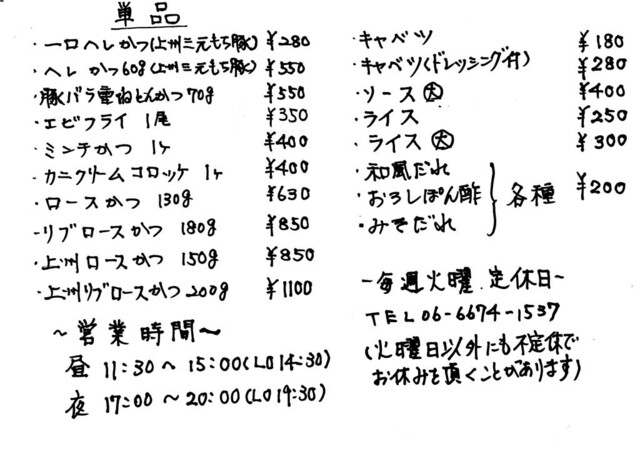 単品
・一口ヘレかつ(上州三元もち豚) ¥280
・ヘレかつ60g(上州三元もち豚) ¥550
・豚バラ重ねとんかつ70g ¥550
・エビフライ 1尾 ¥350
・ミンチかつ 1ヶ ¥400
・カニクリームコロッケ 1ヶ ¥400
・ロースかつ 130g ¥630
・リブロースかつ 180g ¥850
・上州ロースかつ 150g ¥850
・上州リブロースかつ200g ¥1100
〜営業時間〜
昼 11:30〜15:00(LO14:30)
夜 17:00〜20:00(LO19:30)
・キャベツ ¥180
・キャベツ(ドレッシング付) ¥280
・ソース大 ¥400
・ライス ¥250
・ライス大 ¥300
・和風だれ
・おろしぽん酢 各種 ¥200
・みそだれ
〜毎週火曜定休日〜
TEL06-6674-1537
(火曜日以外にも不定休で
お休みを頂くことがあります)